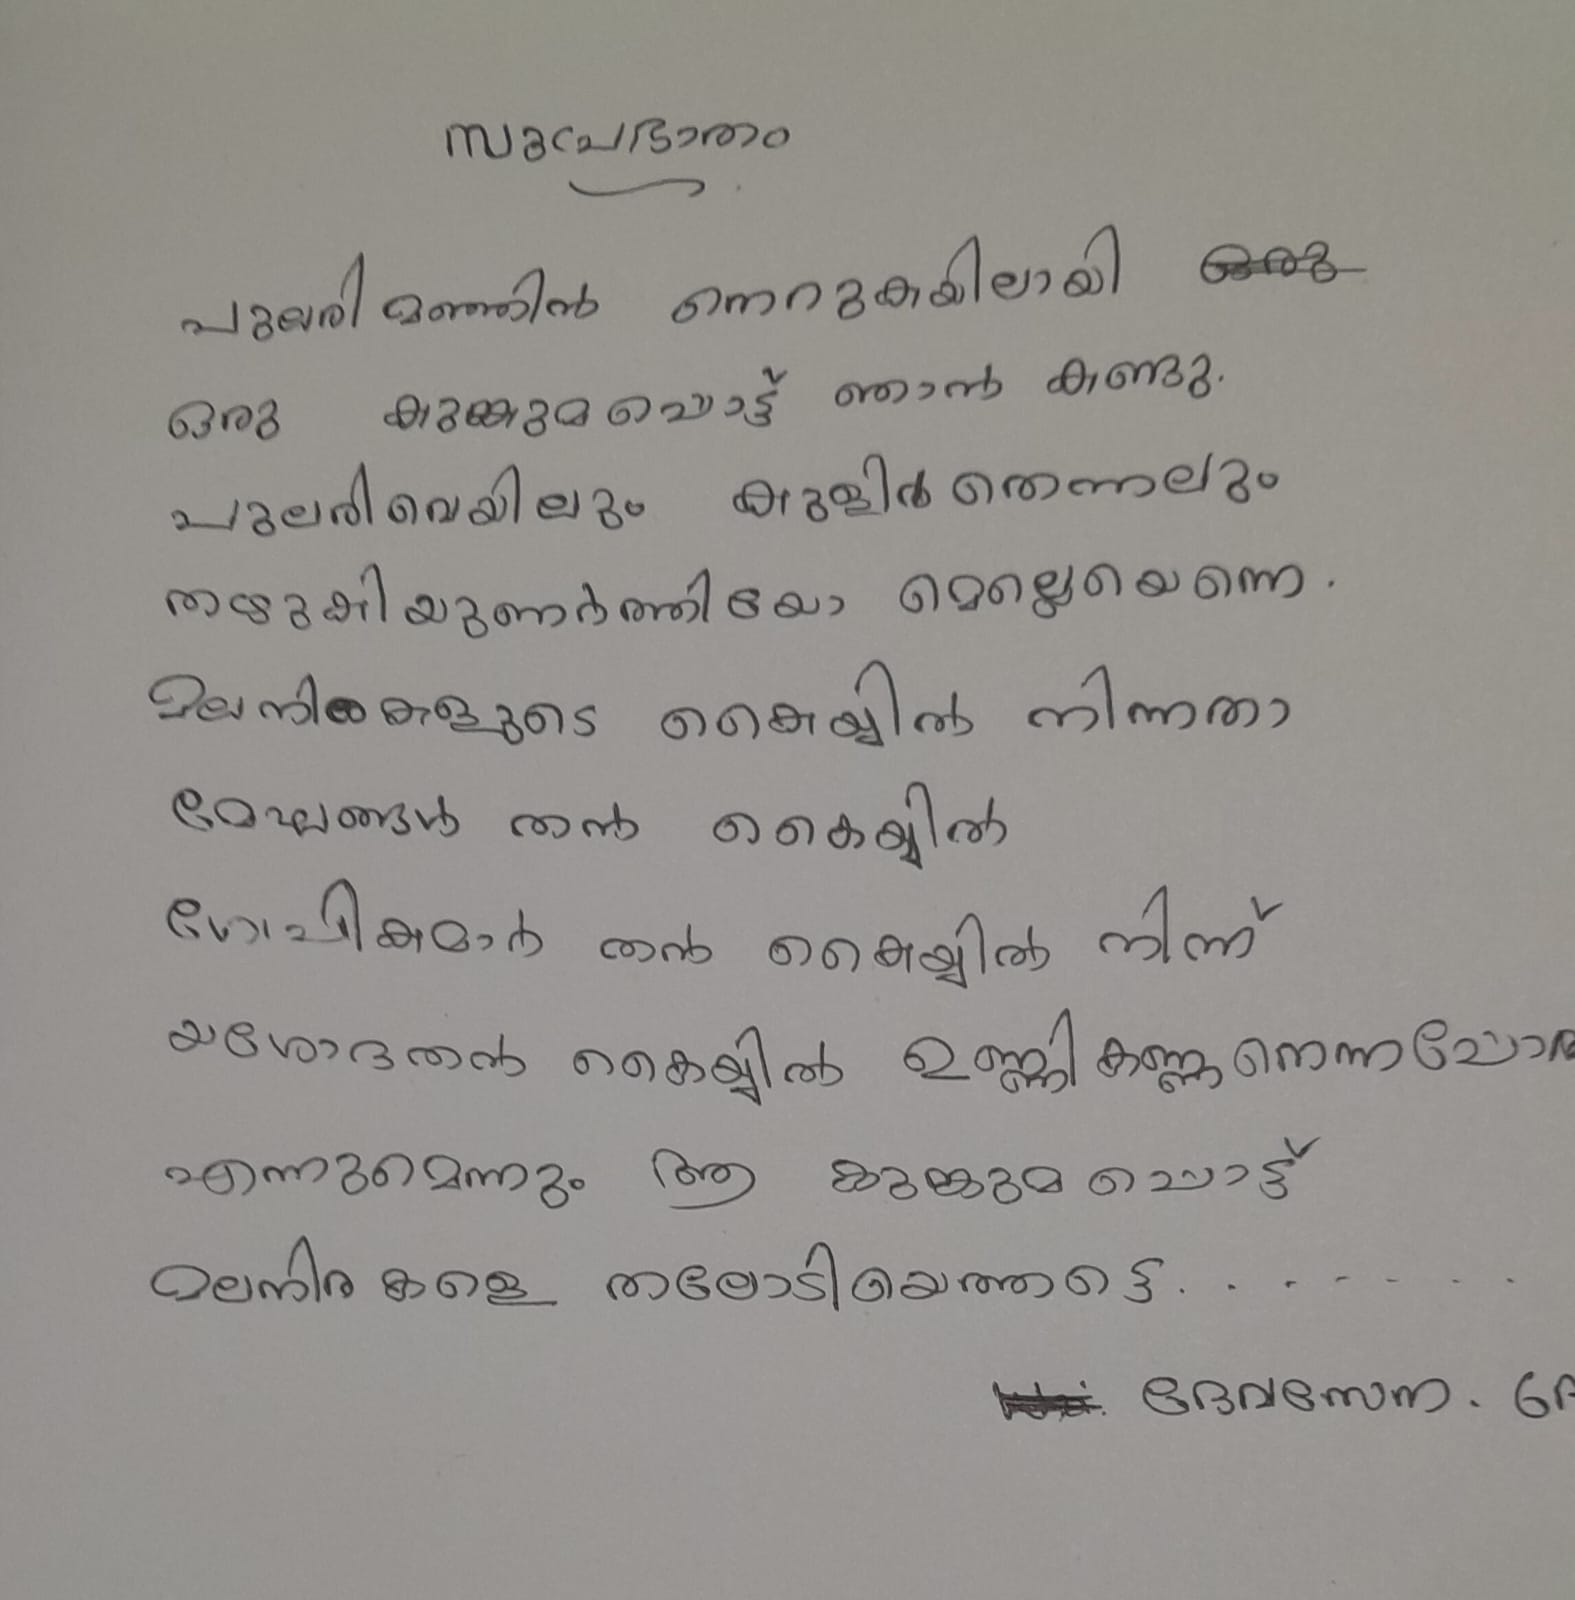 സുപ്രഭാതം
പുലരിമഞ്ഞിൻ നെറുകയിലായി
ഒരു കുങ്കുമപൊട്ട് ഞാൻ കണ്ടു.
പുലരിവെയിലും കുളിർതെന്നലും
തഴുകിയുണർത്തിയോ മെല്ലെയെന്നെ.
മലനിരകളുടെ കൈയ്യിൽ നിന്നതാ
മേഘങ്ങൾ തൻ കൈയ്യിൽ
ഗോപികമാർ തൻ കൈയ്യിൽ നിന്ന്
യശോദതൻ കൈയ്യിൽ ഉണ്ണികണ്ണനെന്നപോൽ
എന്നുമെന്നും ആ കുങ്കുമപൊട്ട്
മലനിരകളെ തലോടിയെത്തട്ടെ. . . - - - . .
ദേവസേന.